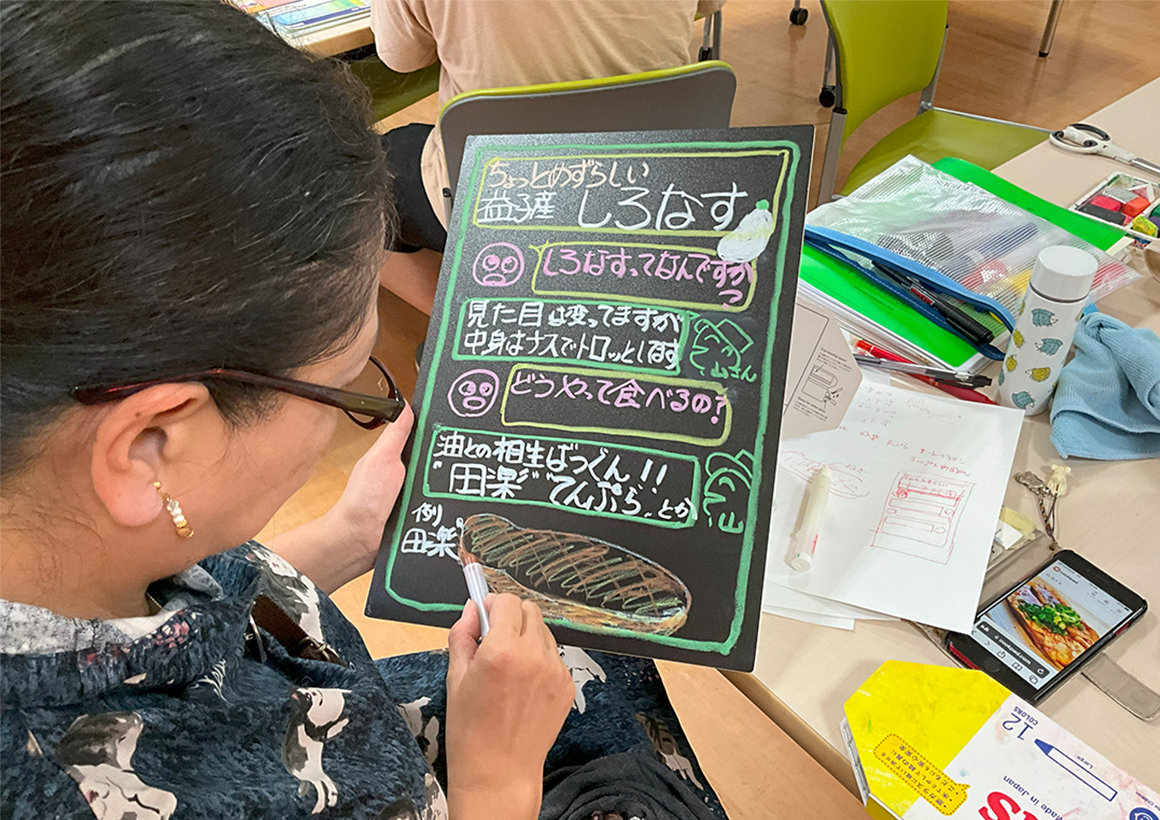 ちょっとめずらしい
益子産 しろなす
しろなすってなんですかっ
見た目は変ってますが
中身はナスでトロッとします
て山さん
どうやって食べるの?
油との相生ばつぐん!!
"田楽" "てんぷら"とか
て山
例)
田楽
12
COLORS
Large
Made in Japan